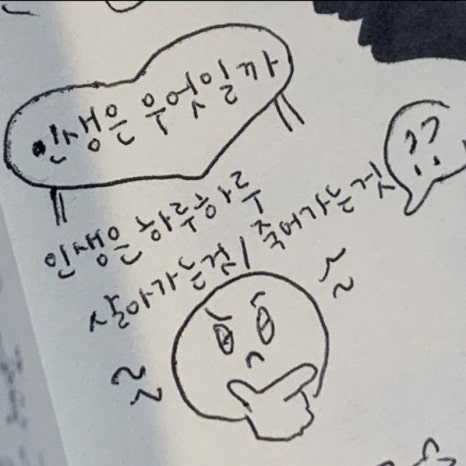 인생은 무엇일까
??
인생은 하루하루
살아가는것/죽어가는것